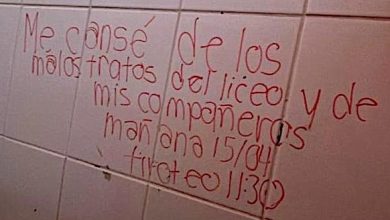 Me cansé de los
malos tratos del liceo y de
mis compañeros
mañana 15/04
tiroteo 11:30